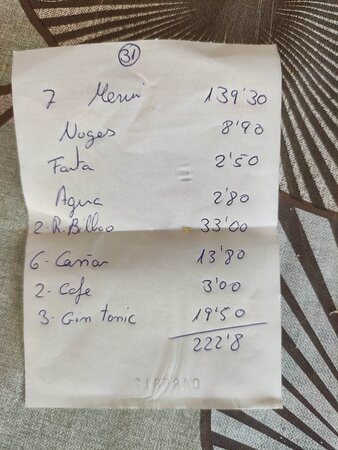 31
7 Menu 139'30
Nuges 8'90
Fanta 2'50
Agua 2'80
2-R.Bilbao 33'00
6-Cañas 13'80
2-Cafe 3'00
3-Gin tonic 19'50
222'8